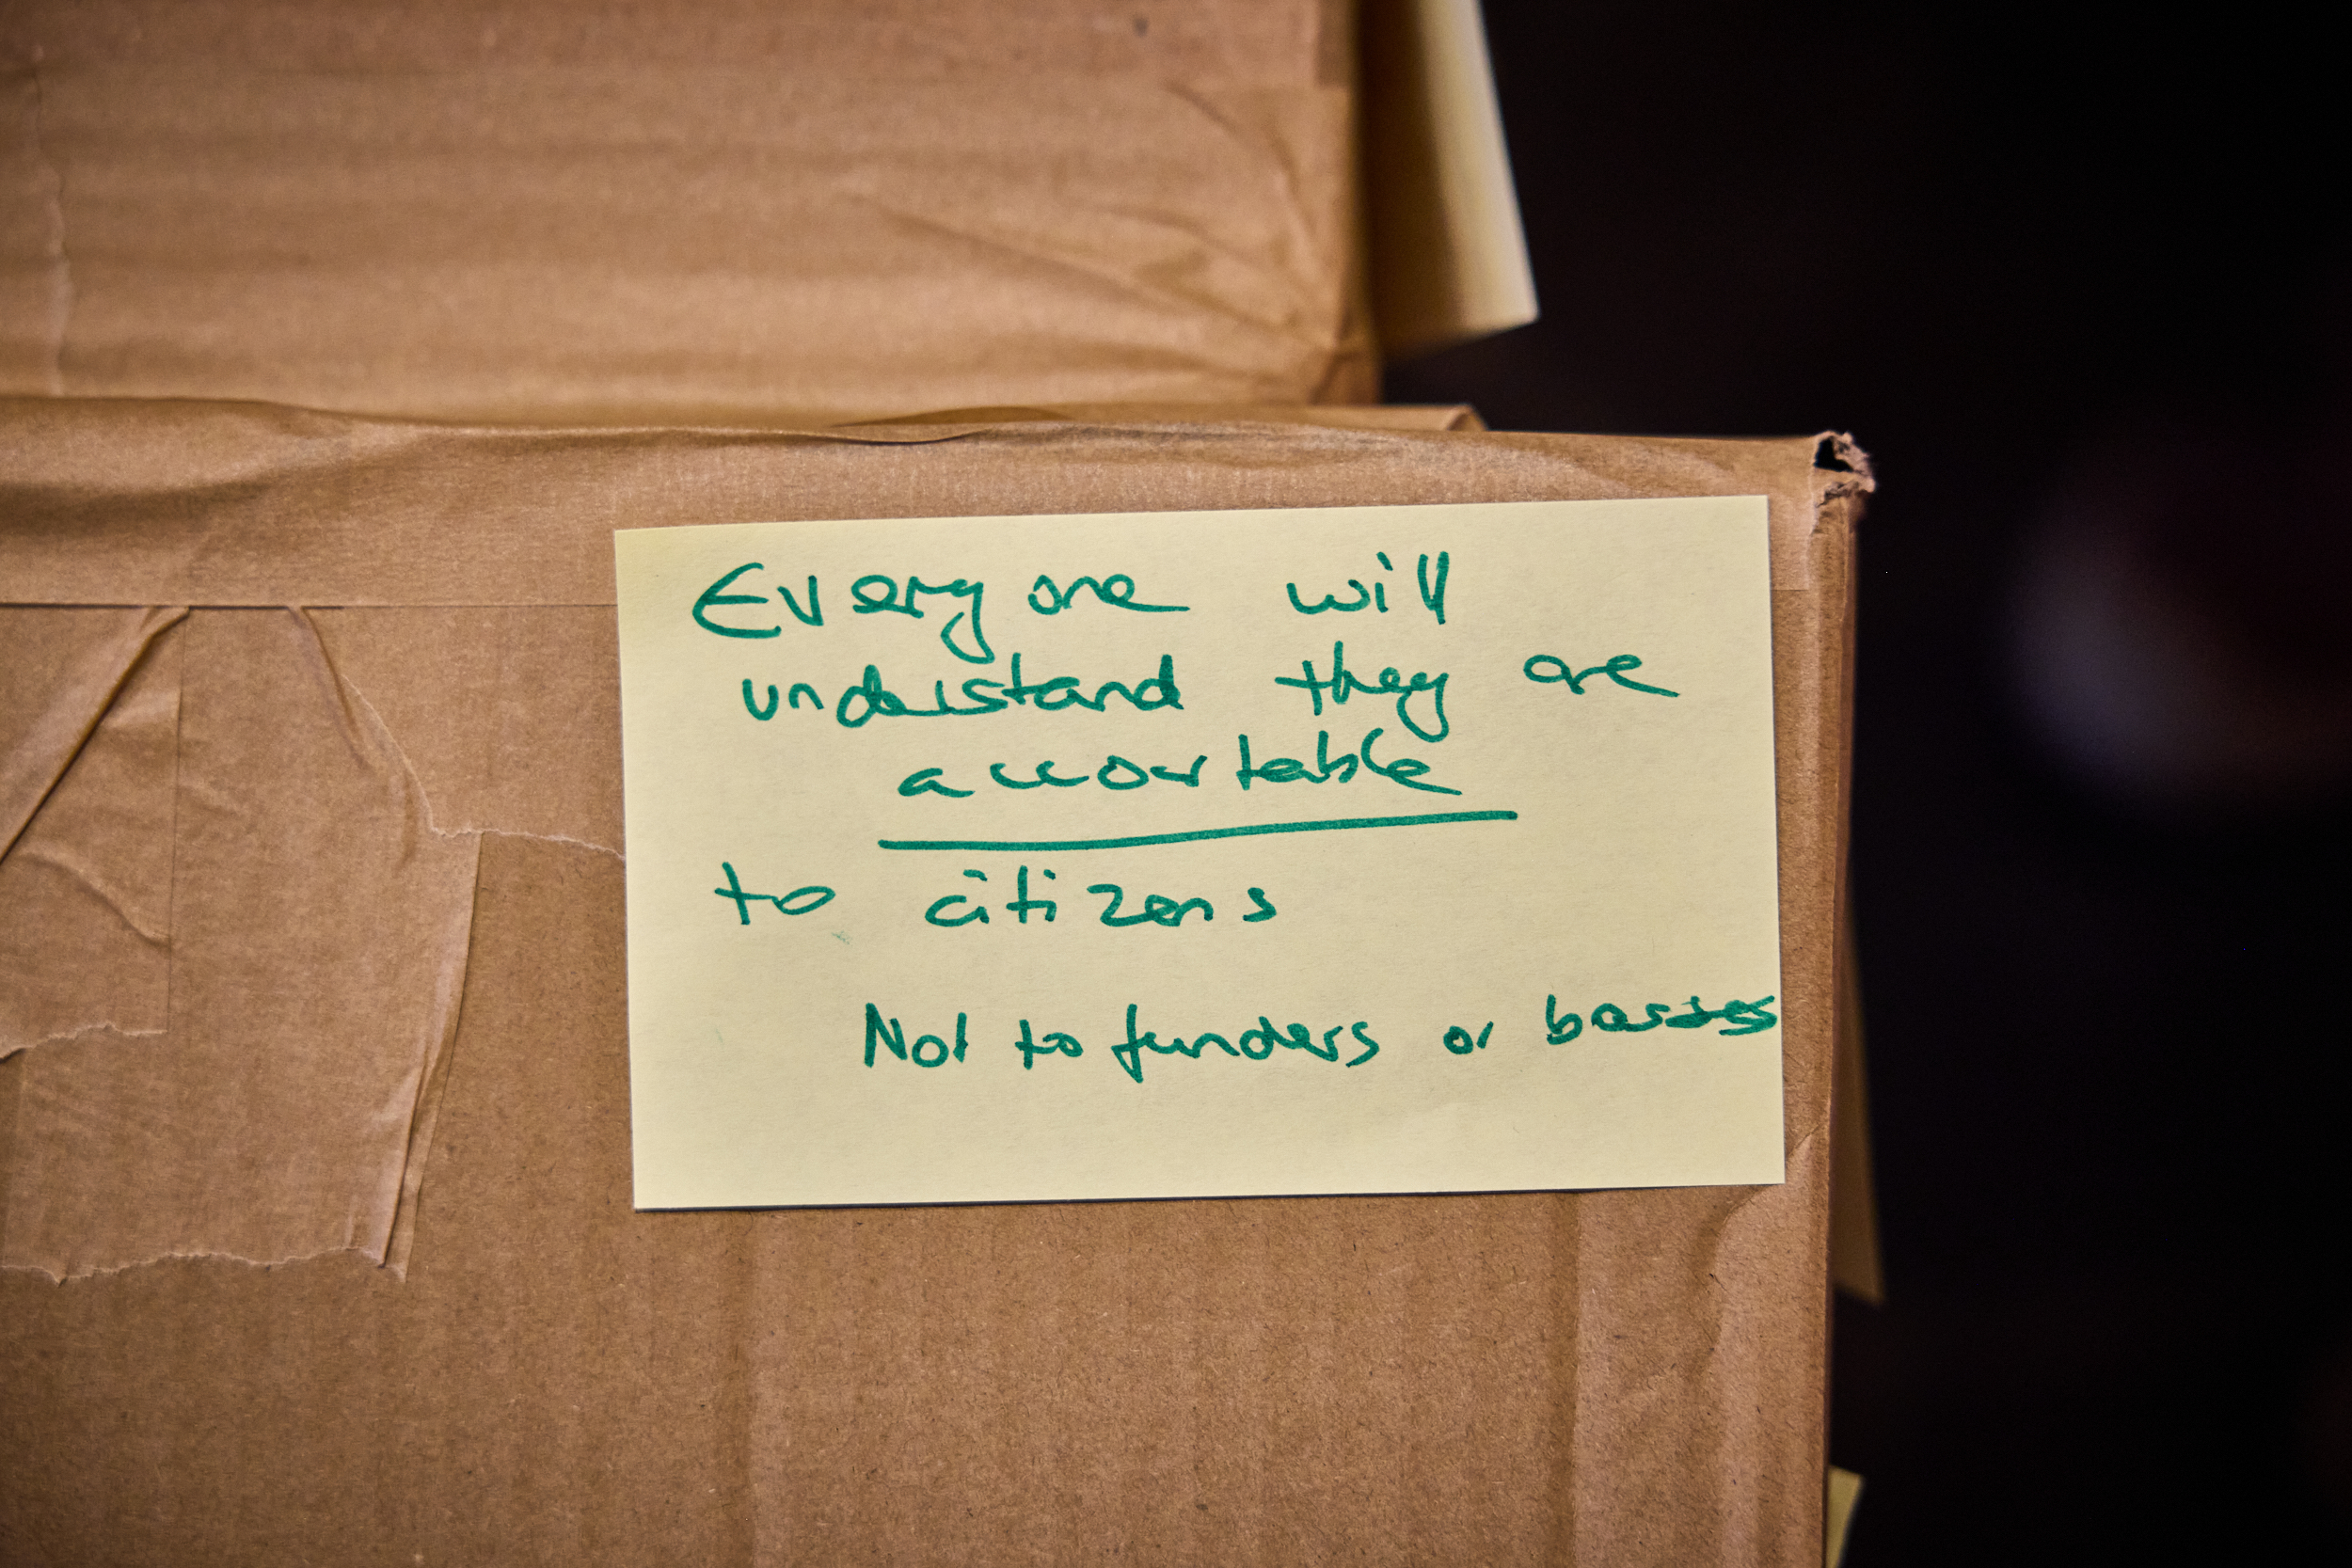 Everyone will
understand they are
accountable
to citizens
Not to funders or bosses